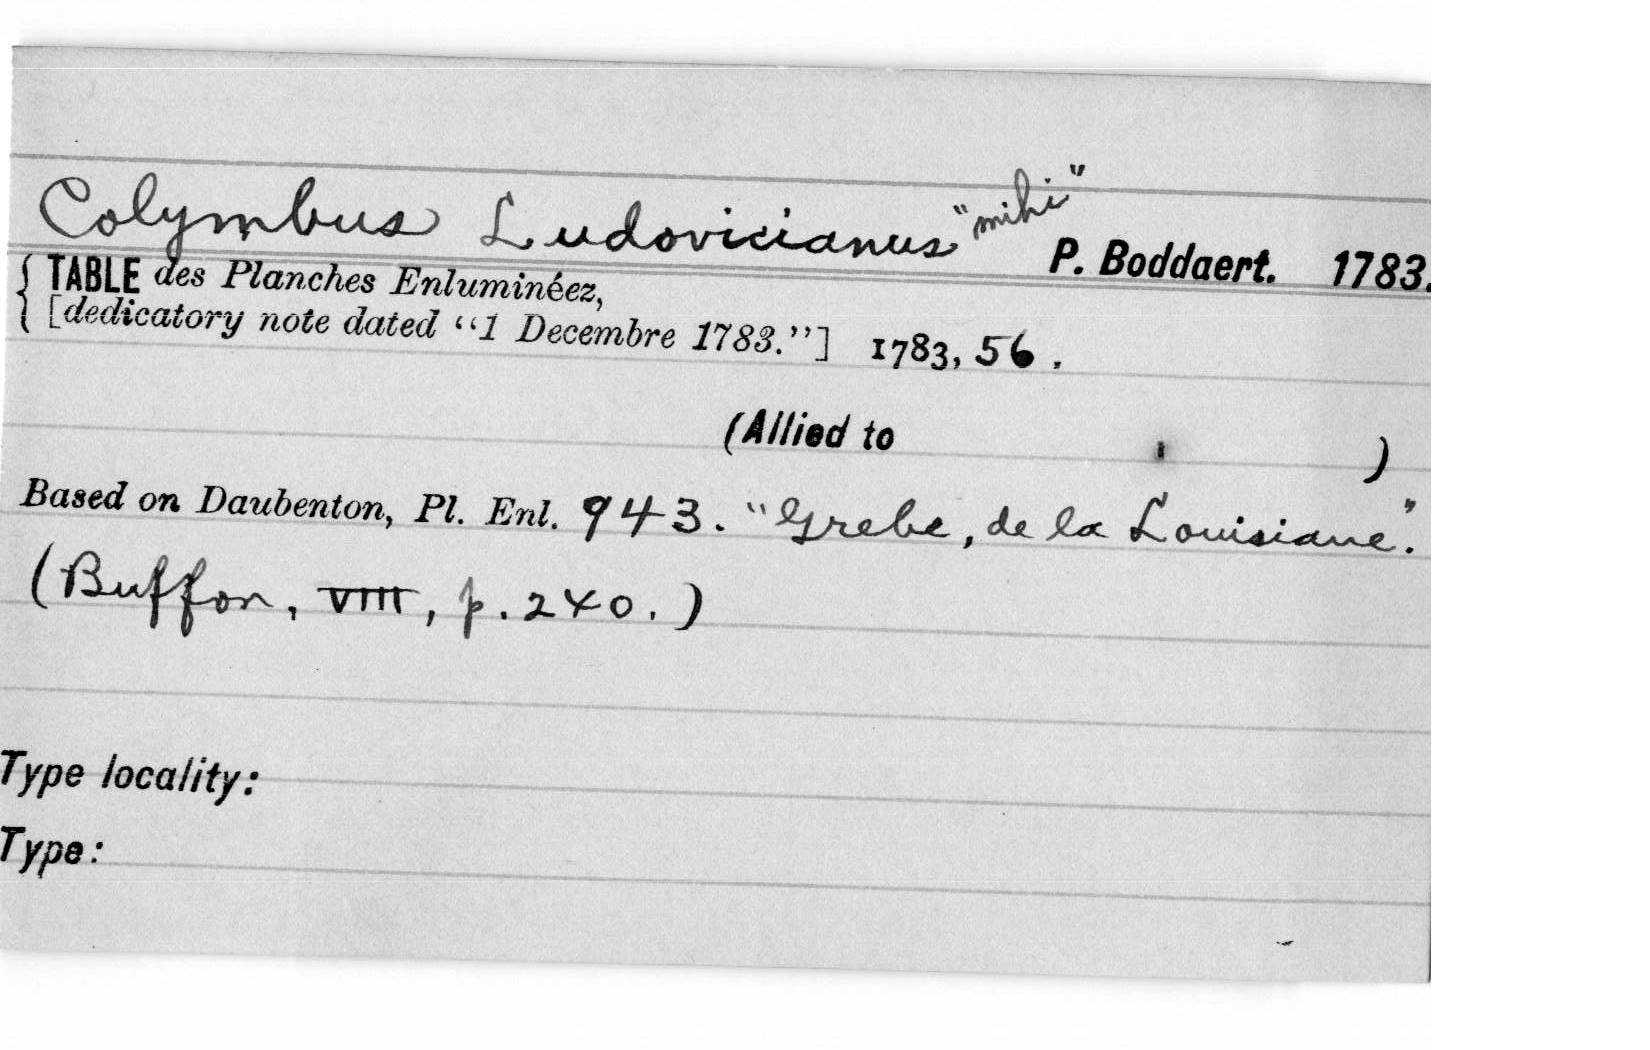 Colymbus Ludovicianus "mihi" P. Boddaert. 1783.
TABLE des Planches Enluminéez,
[dedicatory note dated "1 Decembre 1783."] 1783, 56.
(Allied to )
Based on Daubenton, Pl. Enl. 943. "Grebe, de la Louisiane".
(Buffon, VIII, p. 240.)
Type locality:
Type: